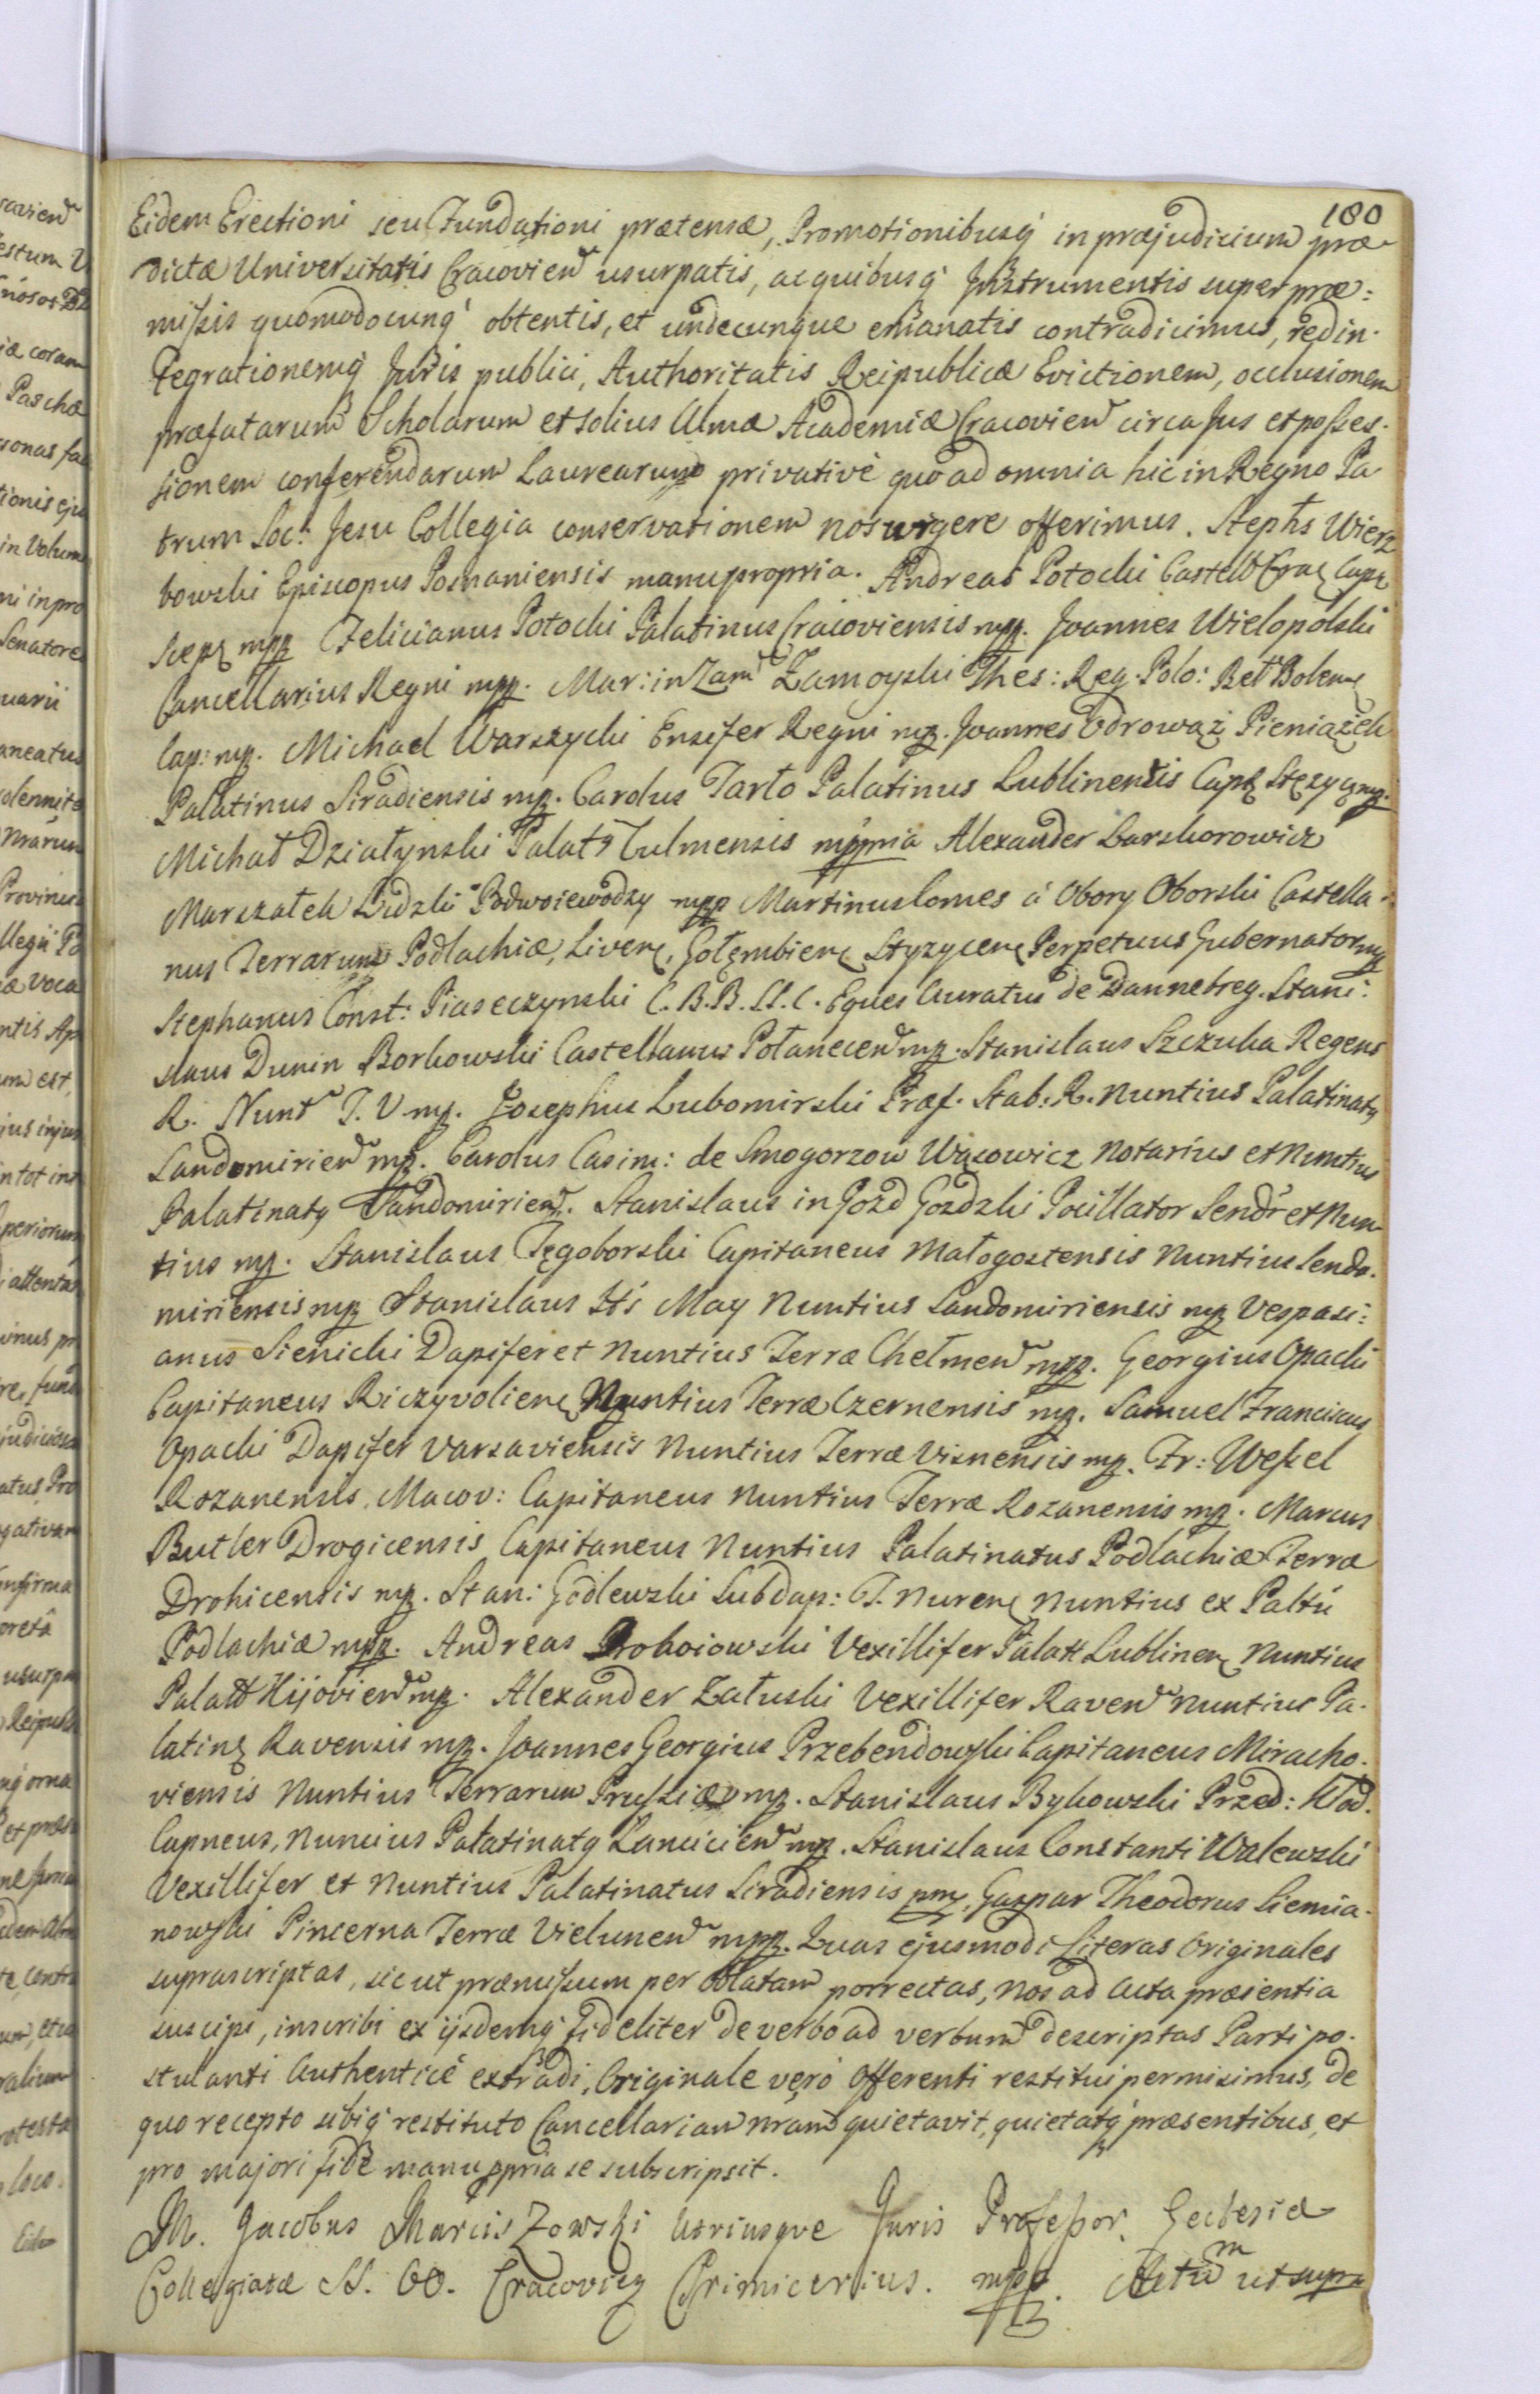 180
Eidem Erectioni seu Fundationi prætensæ, Promotionibusq; in præjudicium præ-
dictæ Universitatis Cracovien usurpatis, ac quibusq; Instrumentis super præ:
missis quomodocunq; obtentis, et undecunque emanatis contradicimus, redin-
tegrationemq; Juris publici, Authoritatis Reipublicæ Evictionem, occlusionem
præfatarum Scholarum et solius Almæ Academiæ Cracovien circa Jus et posses-
sionem conferendarum Laurearum privativè quo ad omnia hic in Regno Pa-
trum Soc: Jesu Collegia conservationem nos urgere offerimus. Stephs Wierz
bowski Episcopus Posnaniensis manu propria. Andreas Potocki Castell Crac Cap
Scep mpp Felicianus Potocki Palatinus Cracoviensis mpp. Joannes Wielopolski
Cancellarius Regni mpp. Mar: in Zam Zamoyski Thes: Reg. Polo: Bel Bolem
Cap: mp. Michael Warszycki Ensifer Regni mp. Joannes Odrowąż Pieniążek
Palatinus Siradiensis mp. Carolus Tarło Palatinus Lublinensis Cap Stęzyc mp.
Michał Działynski Palats Culmensis mppria Alexander Barskorowicz
Marszałek Lidzki Podwoiewodzy mpp Martinus Comes á Obory Oborski Castella-
nus Terrarum Podlachiæ, Liven, Gołęmbien Styzycen Perpetuus Gubernator mp
Stephanus Const: Piaseczynski C. B. B. LL. C. Eques Auratus de Dannebreg. Stani:
slaus Dunin Borkowski Castellanus Połanecen mp. Stanislaus Szczuka Regens
R. Nunt T. V mp. Josephus Lubomirski Præf. Stab: R. Nuntius Palatinatq
Sandomirien mp. Carolus Casim: de Smogorzow Wąsowicz Notarius et Nuntius
Palatinatq Sandomirien. Stanislaus in Gozd Gozdzki Pocillator Sendr et Nun-
tius mp. Stanislaus Tęgoborski Capitaneus Małogostensis Nuntius Sendo-
miriensis mp Stanislaus May Nuntius Sandomiriensis mp Vespasi:
anus Sienicki Dapifer et Nuntius Terræ Chełmen mpp. Georgius Opacki
Capitaneus Riczyvolien Nuntius Terræ Czernensis mp. Samuel Franciscus
Opacki Dapifer Varsaviensis Nuntius Terræ Visnensis mp. Fr: Wessel
Rozanensis, Macov: Capitaneus Nuntius Terræ Rozanensis mp. Marcus
Butler Drogicensis Capitaneus Nuntius Palatinatus Podlachiæ Terræ
Drohicensis mp. Stan: Godlewski Subdap: T. Nuren Nuntius ex Palłu
Podlachiæ mpp. Andreas Droboiowski Vexillifer Palatt Lublinen Nuntius
Palatt Kijovien mp. Alexander Załuski Vexillifer Raven Nuntius Pa-
latinq Ravensis mp. Joannes Georgius Przebendowski Capitaneus Miracho-
viensis Nuntius Terrarum Prussiæ mp. Stanislaus Bykowski Przed: Kłod.
Capneus, Nuncius Palatinatq Lancicien mp. Stanislaus Constanti Walewski
Vexillifer et Nuntius Palatinatus Siradiensis pmp, Gaspar Theodorus Siemia-
nowski Pincerna Terræ Vielunen mpp. Quas ejusmodi Literas Originales
suprascriptas, sicut præmissum per Oblatam porrectas, nos ad Acta præsentia
suscipi, inscribi ex ijsdemq; fideliter de verbo ad verbum descriptas Parti po-
stulanti Authenticè extradi, Originale verò Offerenti restitui permisimus, de
quo recepto sibiq; restituto Cancellariam nram quietavit, quietatq; præsentibus, et
pro majori fide manu ppria se subscripsit.
M. Jacobus Marciszowski Utriusque Juris Professor, Ecclesiæ
Collegiatæ SS. OO. Cracovien Primicerius. mpp. Actum ut supra